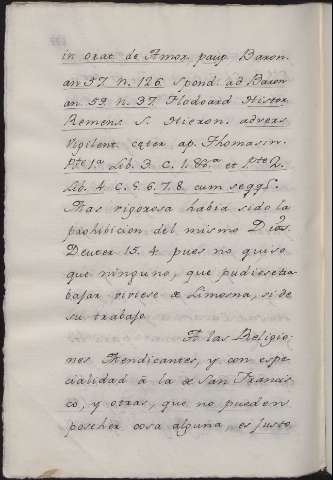 in orat. de Amor. paup. Baron.
an 57. n. 126. Spond. ad Baron
an 59. n. 37. Flodoard Histor
Remens. S. Hieron. advers
Vigilant. cæter. ap. Thomasin.
Pte 1.a Lib. 3. C. 1. et Pte 2.
Lib. 4. C. 5. 6. 7. 8. cum seqq.
Mas rigorosa habia sido la
prohibicion del mismo Dios.
Deuter 15. 4. pues no quiso
que ninguno, que pudiese tra-
bajar viviese de Limosna, si de
su trabajo
A las Religio-
nes Mendicantes, y con espe-
cialidad à la de San Francis-
co, y otras, que no pueden
posehèr cosa alguna, es justo